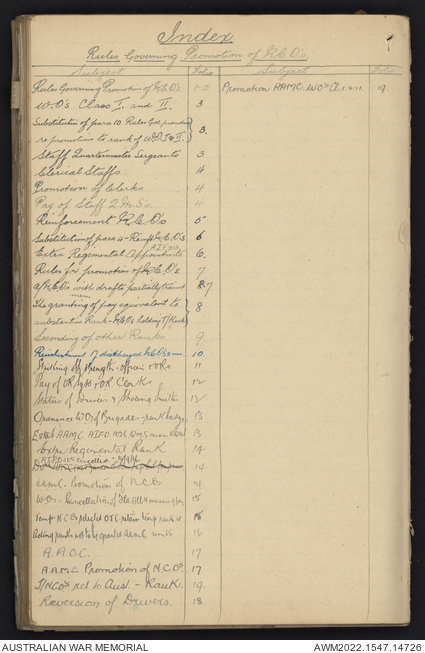 Index
Rules Governing Promotion of N.C.O's
Subject Folio Subject Folio
Rules Governing Promotion of N.C.O's 1-2 Promotion AAMC. WO's Cl. 19.
W.O's Class I. and II. 3
Substitution of para 10 Rules Gov. 
re promotions to rank of W.O. I & II. 3.
Staff Quartermaster Sergeants 3
Clerical Staffs 4
Promotion of Clerks 4
Pay of Staff Q.M.S's 4
Reinforcement N.C.O's 5
Substitution of para 4 - Reinft N.C.O's 6
Extra Regimental Appointments 6.
Rules for promotion of N.C.O's 7
a/N.C.O's with drafts partially trained men 7
The granting of pay equivalent to
substantive Rank - N.C.O's holding T/Rank 8
Seconding of other Ranks 9.
Reinstatement of discharged N.C.O's 10.
Striking off strength - officers & ORs 11
Pay of Clerks 12
Status of Drivers & Shoeing Smiths 12
Ordnance W.O's of Brigades - rank badge 13
Estab AAMC 13
Extra Regimental Rank 14
cancelled
14
AAMC. Promotion of N.C.O's 14
W.O's. Cancellation of 15
retain temp rank 15
Acting rank not to be granted AAMC units 16
A.A.O.C. 17
A.A.M.C Promotion of N.C.O's. 17
T/NCO's ret to Aust - Rank. 19.
Reversion of Drivers. 18
AUSTRALIAN WAR MEMORIAL AWM2022.1547.14726